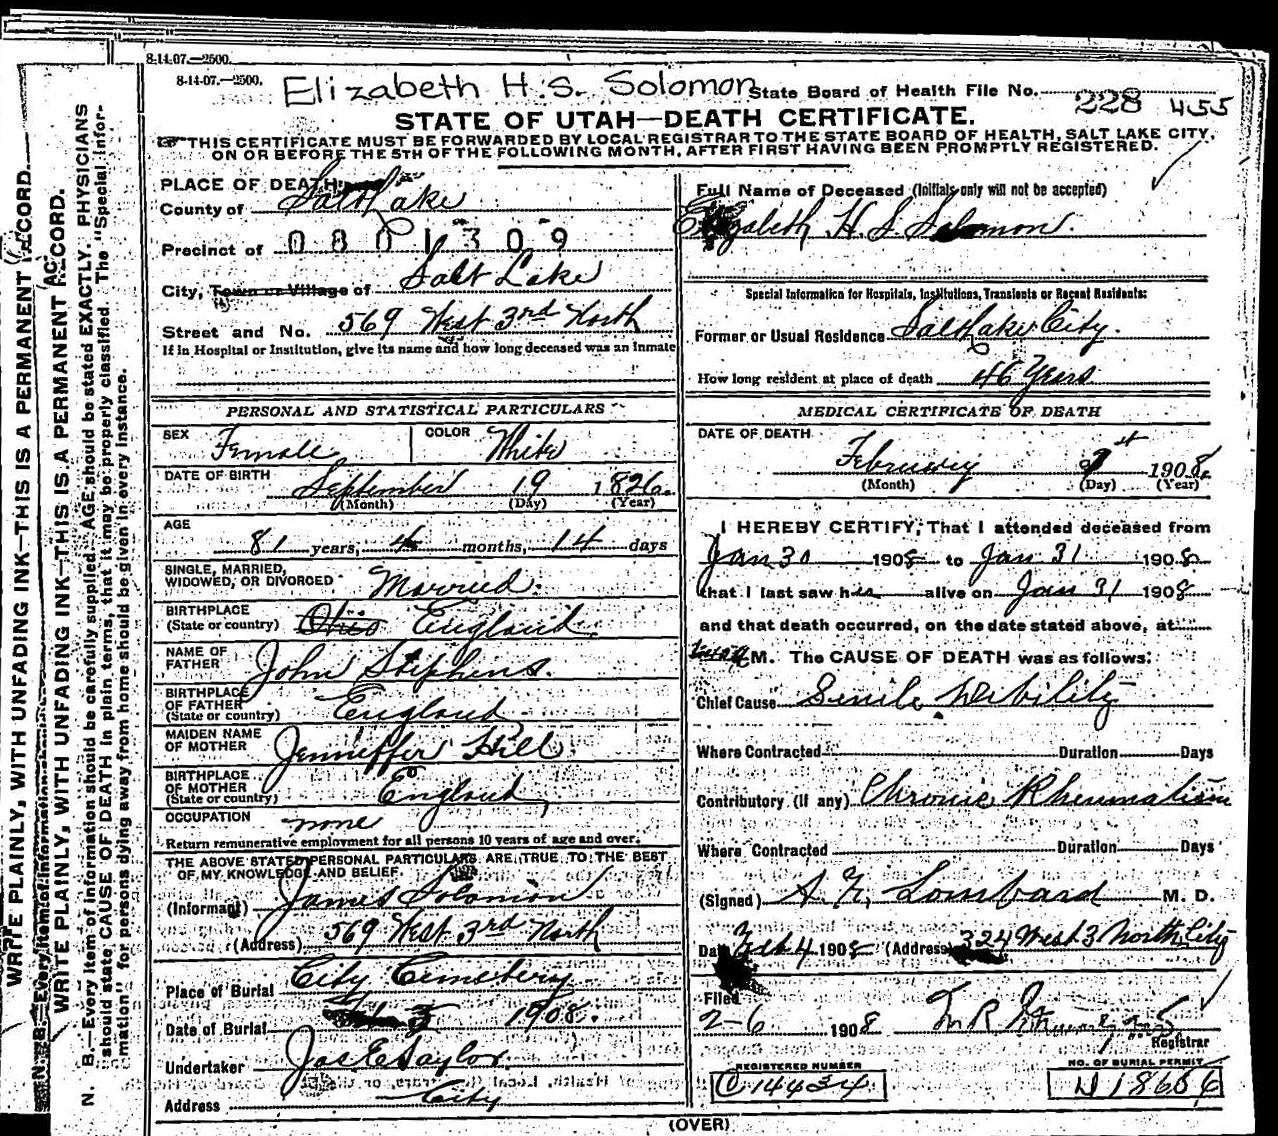 8-14-07.—2500.
8-14-07.—2500.
Elizabeth H. S. Solomon State Board of Health File No. 228 455
STATE OF UTAH—DEATH CERTIFICATE.
THIS CERTIFICATE MUST BE FORWARDED BY LOCAL REGISTRAR TO THE STATE BOARD OF HEALTH, SALT LAKE CITY,
ON OR BEFORE THE 5TH OF THE FOLLOWING MONTH, AFTER FIRST HAVING BEEN PROMPTLY REGISTERED.
WRITE PLAINLY, WITH UNFADING INK—THIS IS A PERMANENT RECORD.
N. B.—Every item of information
WRITE PLAINLY, WITH UNFADING INK—THIS IS A PERMANENT RECORD.
N. B.—Every item of information should be carefully supplied. AGE should be stated EXACTLY. PHYSICIANS
should state CAUSE OF DEATH in plain terms, that it may be properly classified. The "Special Infor-
mation" for persons dying away from home should be given in every instance.
PLACE OF DEATH
County of Salt Lake
Precinct of 0801309
City, Town or Village of Salt Lake
Street and No. 569 West 3rd North
If in Hospital or Institution, give its name and how long deceased was an inmate
PERSONAL AND STATISTICAL PARTICULARS
SEX Female COLOR White
DATE OF BIRTH September 19 1826
(Month) (Day) (Year)
AGE 81 years, 4 months, 14 days
SINGLE, MARRIED,
WIDOWED, OR DIVORCED Married.
BIRTHPLACE
(State or country) Ohio England
NAME OF
FATHER John Stephens.
BIRTHPLACE
OF FATHER
(State or country) England
MAIDEN NAME
OF MOTHER Jenneffer Hill
BIRTHPLACE
OF MOTHER
(State or country) England
OCCUPATION none
Return remunerative employment for all persons 10 years of age and over.
THE ABOVE STATED PERSONAL PARTICULARS ARE TRUE TO THE BEST
OF MY KNOWLEDGE AND BELIEF
(Informant) James Solomon
(Address) 569 West 3rd North
Place of Burial City Cemetery
Date of Burial 1908.
Undertaker Jos E Taylor
Address City
Full Name of Deceased (Initials only will not be accepted)
Elizabeth H. S Solomon.
Special Information for Hospitals, Institutions, Transients or Recent Residents:
Former or Usual Residence Salt Lake City.
How long resident at place of death 46 Years
MEDICAL CERTIFICATE OF DEATH
DATE OF DEATH
February 1st 1908
(Month) (Day) (Year)
I HEREBY CERTIFY, That I attended deceased from
Jan 30 1908 to Jan 31 1908
that I last saw her alive on Jan 31 1908
and that death occurred, on the date stated above, at
M. The CAUSE OF DEATH was as follows:
Chief Cause Senile Debility
Where Contracted Duration Days
Contributory (if any) Chronic Rheumatism
Where Contracted Duration Days
(Signed) Lombard M. D.
Date Feb 4 1908 (Address) 324 West 3 North City
Filed
2-6 1908
Registrar
REGISTERED NUMBER
C 14434
NO. OF BURIAL PERMIT
(OVER)